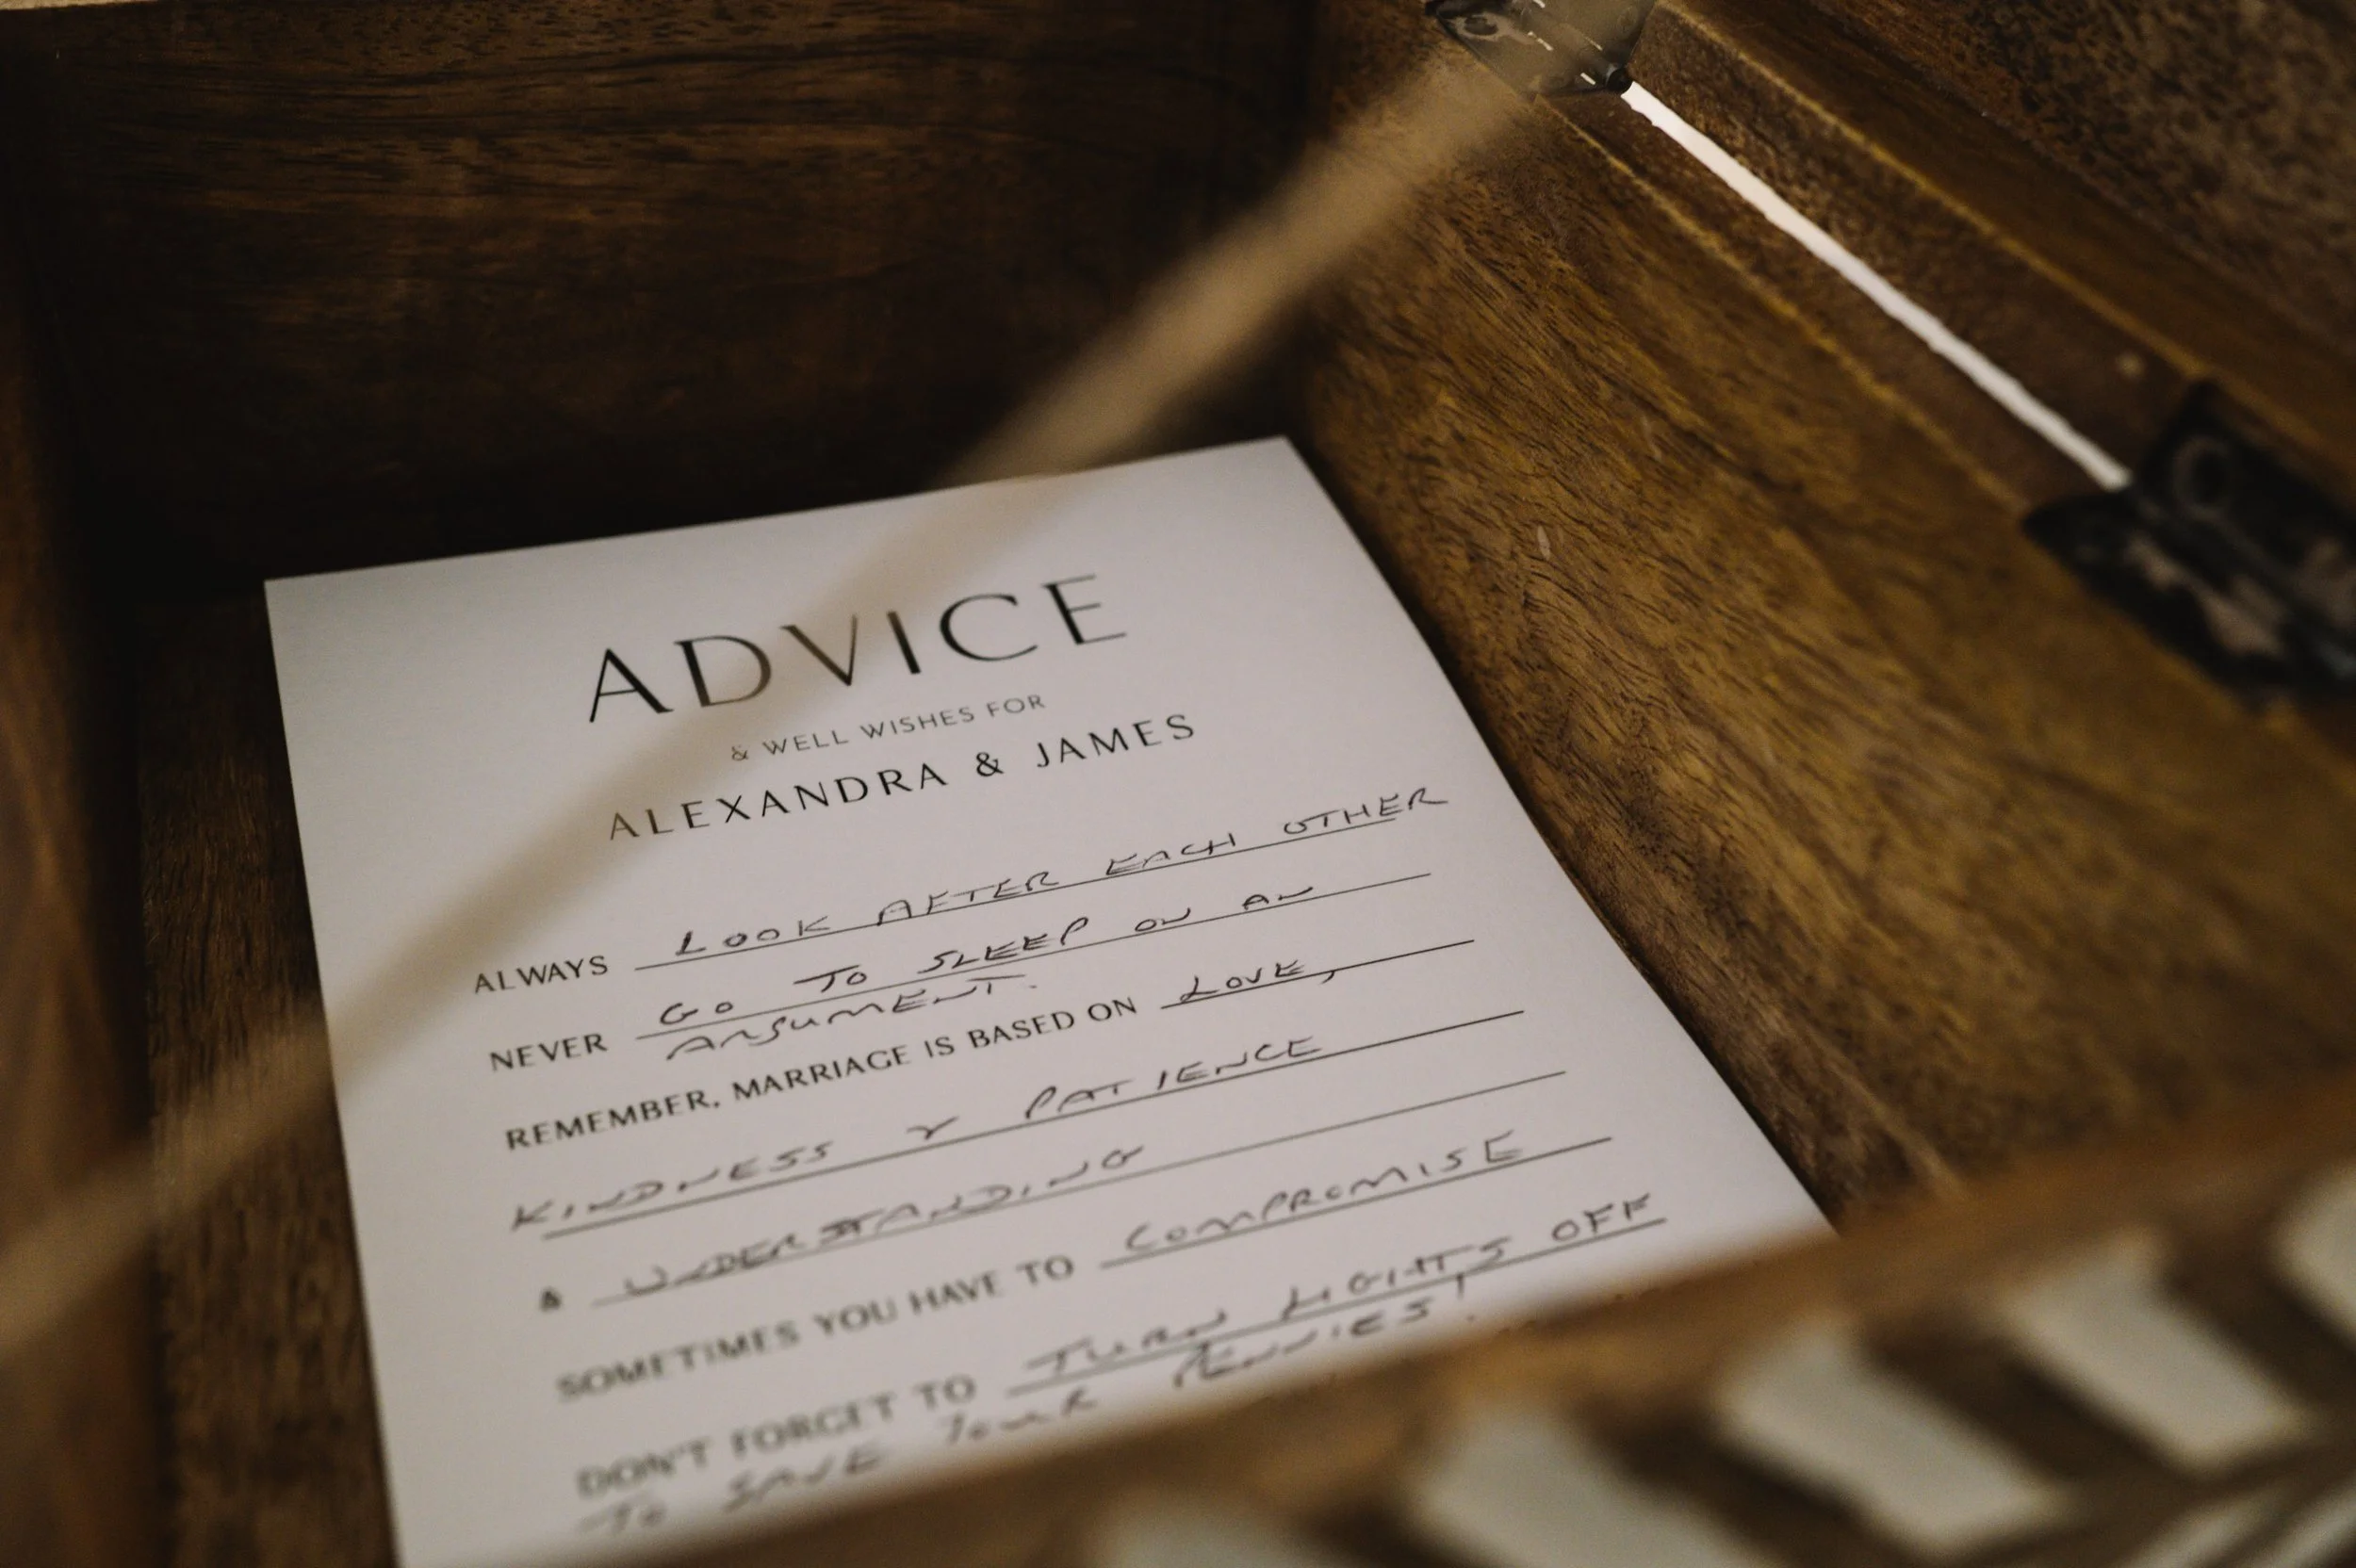 ADVICE
& WELL WISHES FOR
ALEXANDRA & JAMES
ALWAYS LOOK AFTER EACH OTHER
NEVER GO TO SLEEP ON AN
ARGUMENT.
REMEMBER, MARRIAGE IS BASED ON LOVE,
KINDNESS & PATIENCE
& UNDERSTANDING
SOMETIMES YOU HAVE TO COMPROMISE
DON'T FORGET TO TURN LIGHTS OFF
TO SAVE YOUR PENNIES!